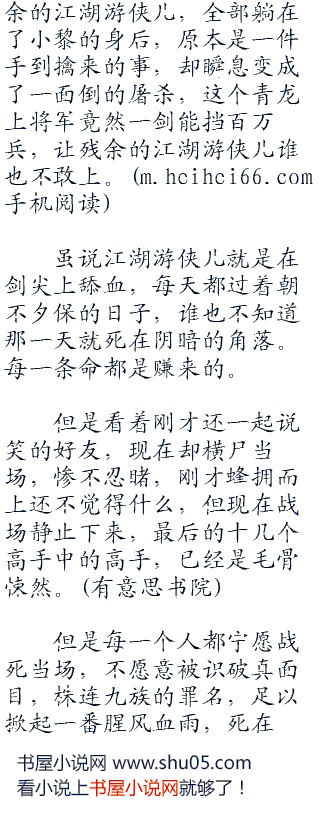 余的江湖游侠儿，全部躺在
了小黎的身后，原本是一件
手到擒来的事，却瞬息变成
了一面倒的屠杀，这个青龙
上将军竟然一剑能挡百万
兵，让残余的江湖游侠儿谁
也不敢上。(m.hcihci66.com
手机阅读)
虽说江湖游侠儿就是在
剑尖上舔血，每天都过着朝
不夕保的日子，谁也不知道
那一天就死在阴暗的角落。
每一条命都是赚来的。
但是看着刚才还一起说
笑的好友，现在却横尸当
场，惨不忍睹，刚才蜂拥而
上还不觉得什么，但现在战
场静止下来，最后的十几个
高手中的高手，已经是毛骨
悚然。(有意思书院)
但是每一个人都宁愿战
死当场，不愿意被识破真面
目，株连九族的罪名，足以
掀起一番腥风血雨，死在
书屋小说网 www.shu05.com
看小说上书屋小说网就够了！